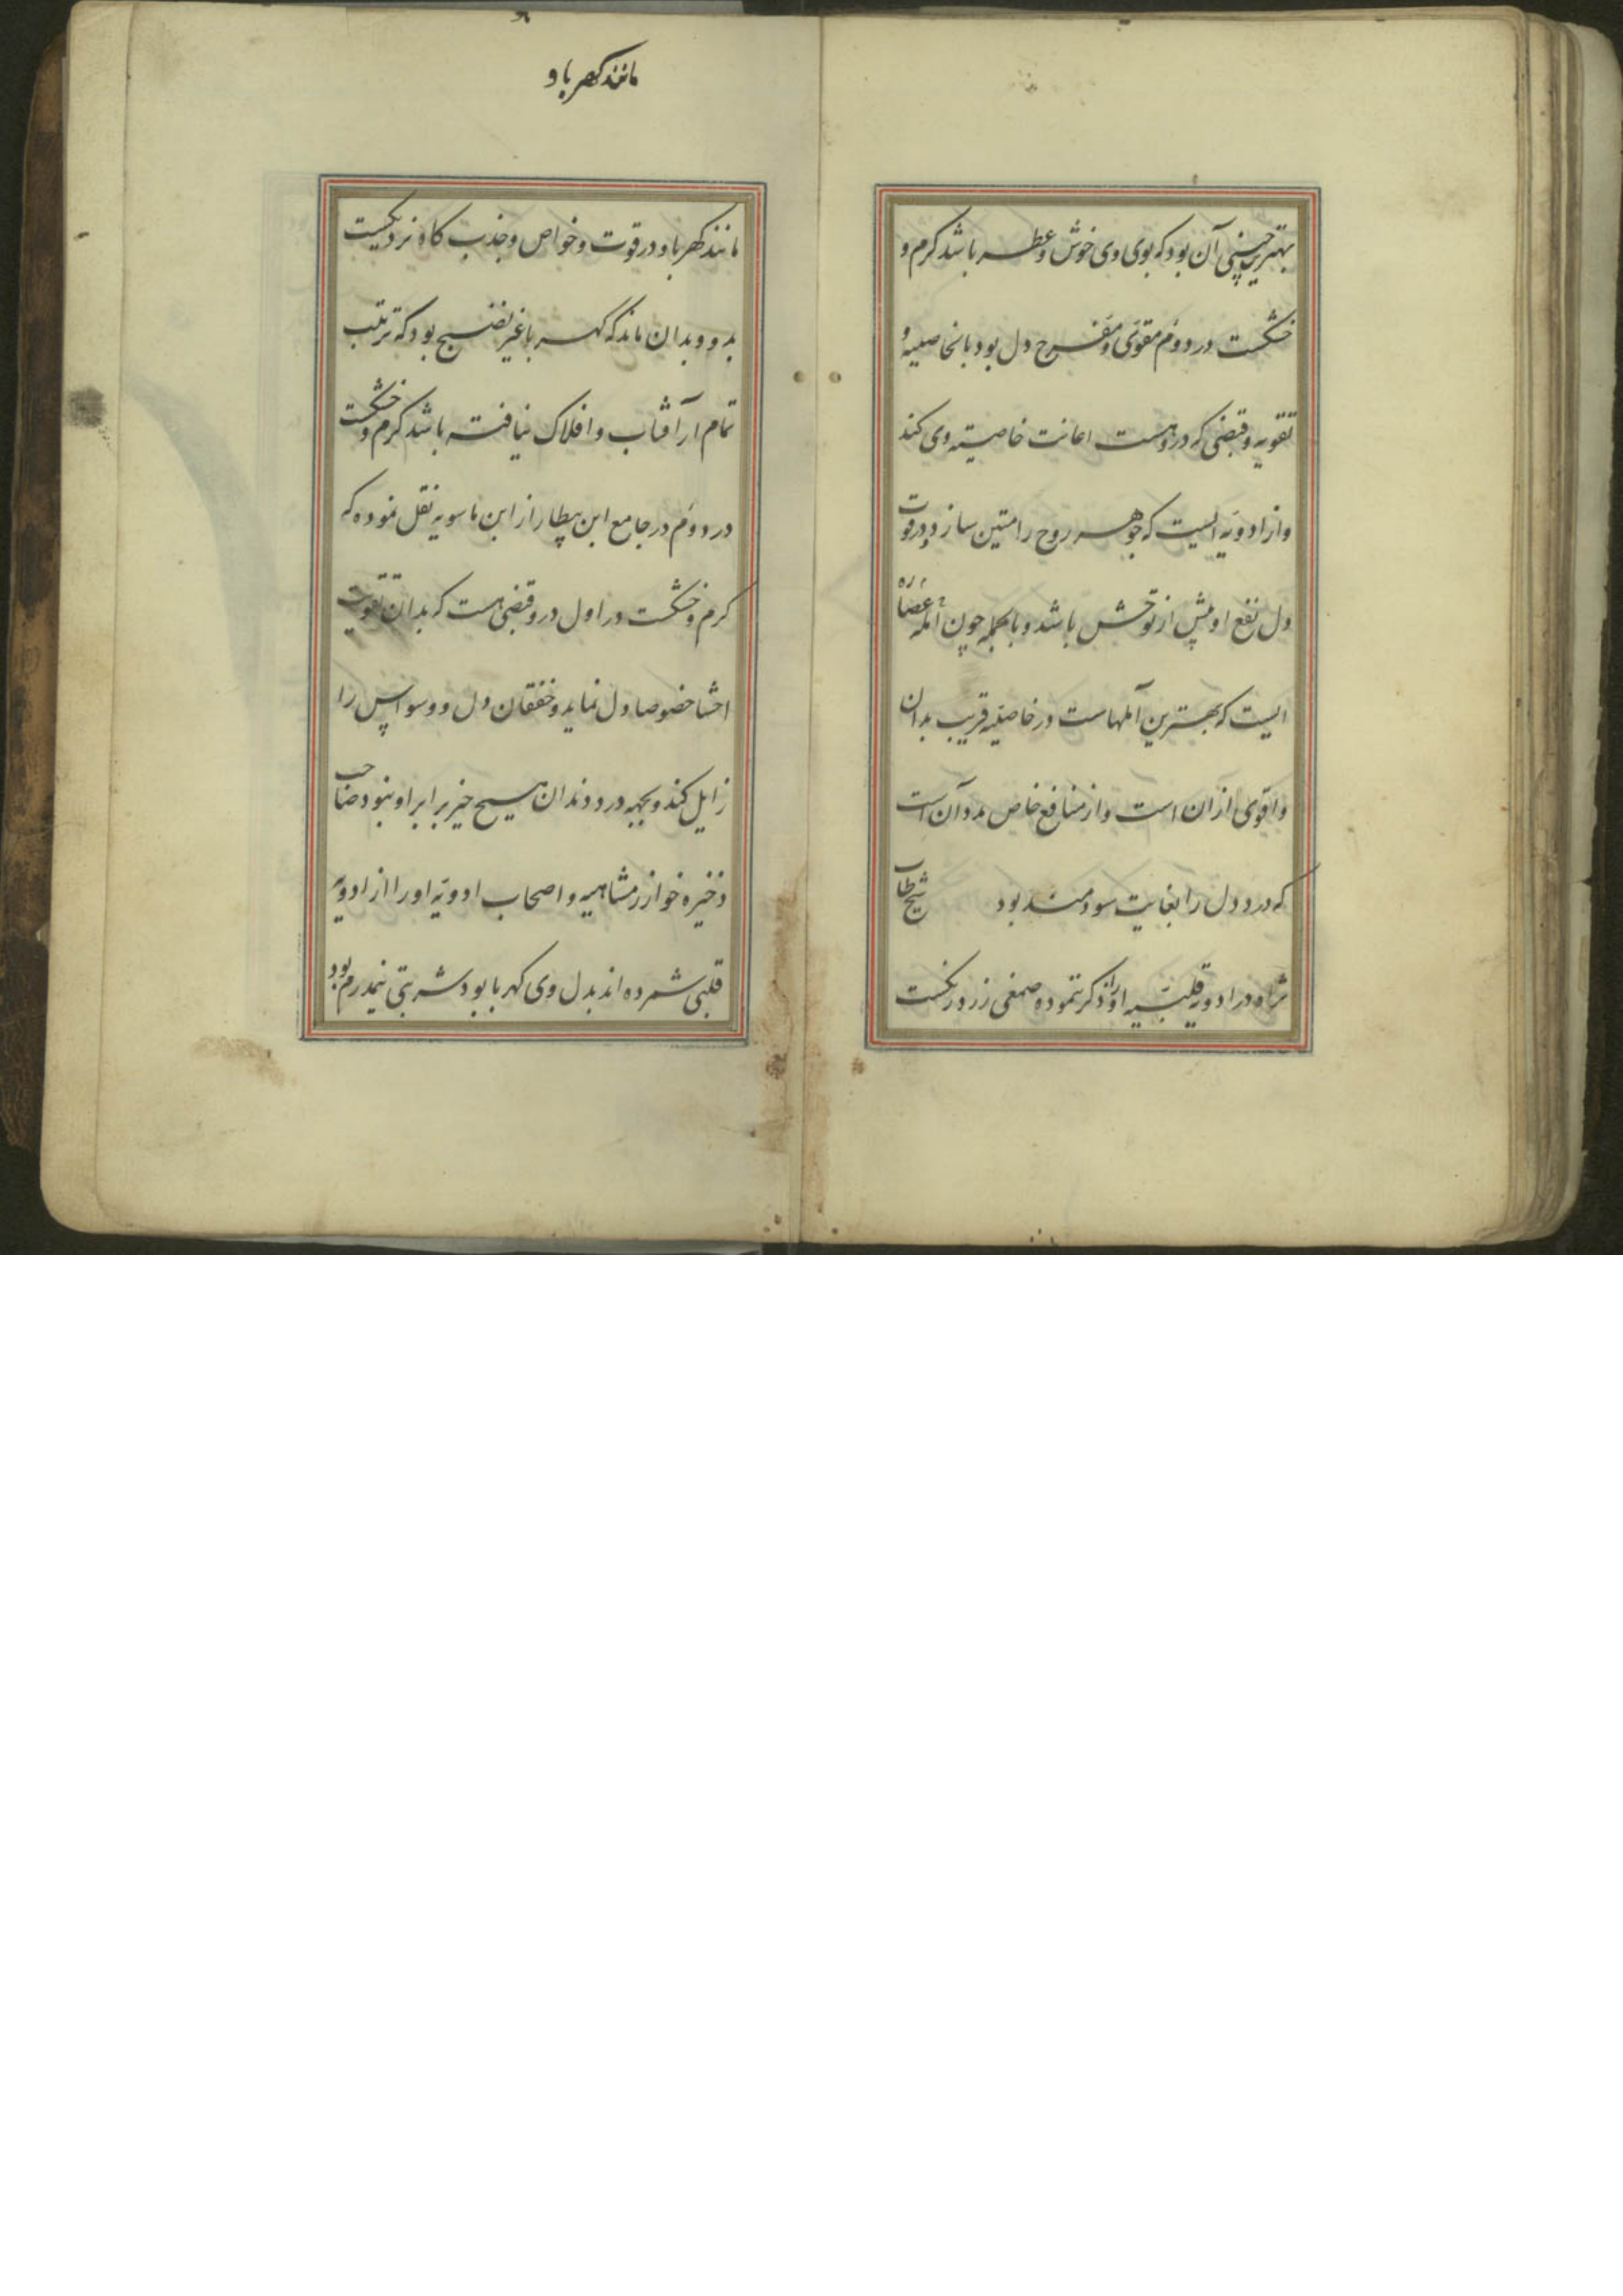 بهترین جنسی آن بود که بوی وی خوش و عطر باشد کرم و
خشکست در دوم مقوی و مفرح دل بود بالخاصیه و
تقویه و قبضی که دروهست اعانت خاصیته وی کند
و از ادویه ایست که جوهر روح را متین سازد و در قوت
دل نفع او پیش از توحش باشد و بالجمله چون آمله عصاره
ایست که بهترین آملهاست در خاصیه قریب بدان
و اقوی از ان است و از منافع خاص مر و آن است
که درد دل را بغایت سودمند بود شیخ طاب
ثراه در ادویه قلبیه او را ذکر ننموده صمغی زرد رنکست
مانند کهربا و در قوت و خواص و جذب کاه نزدیکست
بدو و بدان ماند که کهربا غیر نضیج بود که تربیت
تمام از آفتاب و افلاک نیافته باشد کرم و خشکست
در دوم در جامع ابن بیطار از ابن ماسویه نقل نموده که
کرم و خشکست در اول درو قبضی هست که بدان تقویت
احشا خصوصا دل نماید و خفقان دل و وسواس را
زایل کند و بجهه درد دندان هیچ چیز برابر او نبود صاحب
ذخیره خوارزمشاهیه و اصحاب ادویه او را از ادویه
قلبی شمرده اند بدل وی کهربا بود شربتی نیمدرم بود
مانند کهربا و